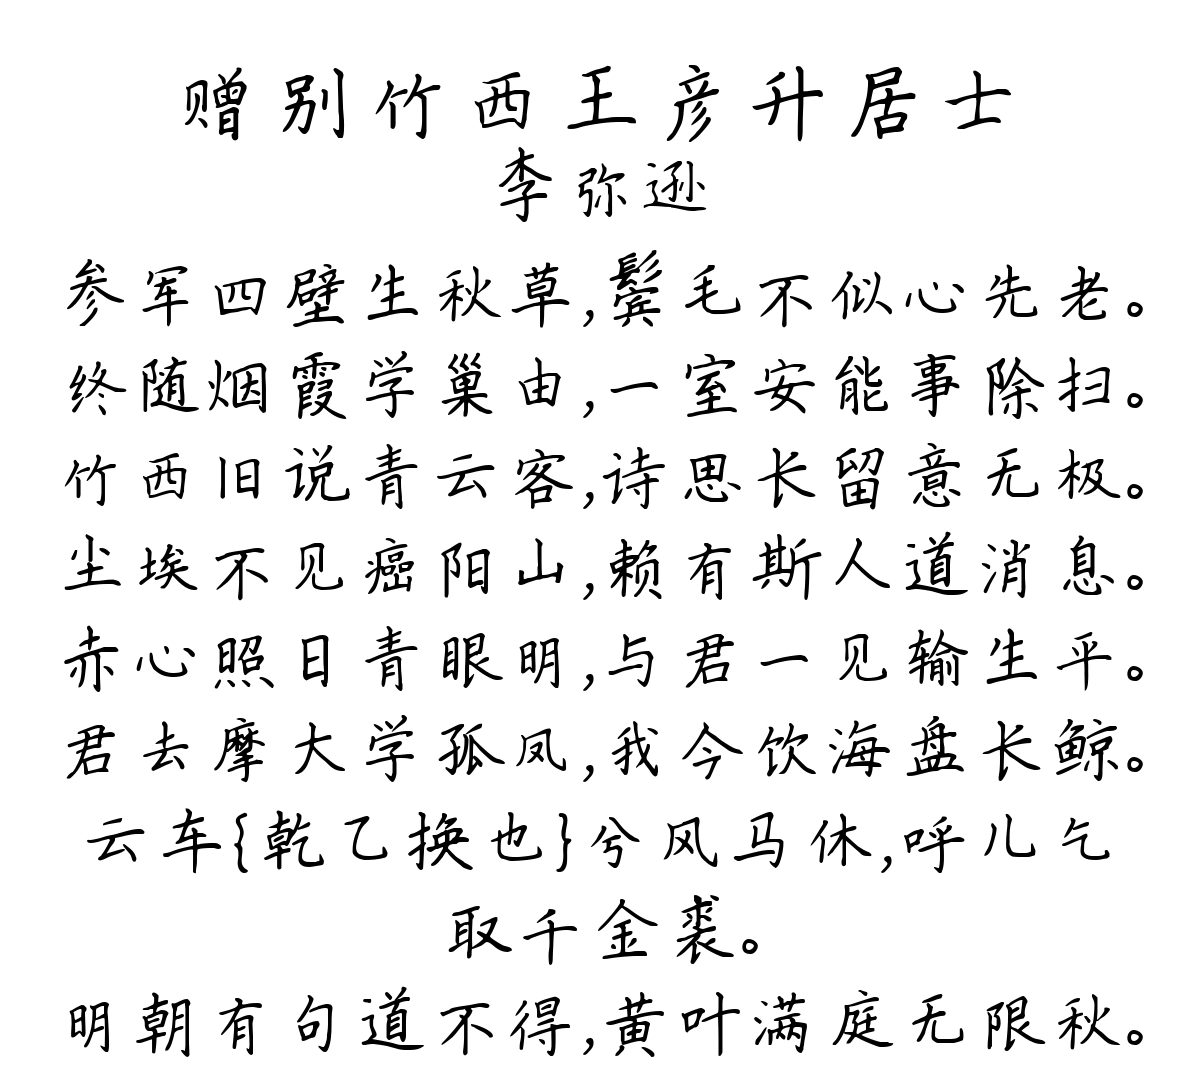 赠别竹西王彦升居士
李弥逊
参军四壁生秋草,鬓毛不似心先老。
终随烟霞学巢由,一室安能事除扫。
竹西旧说青云客,诗思长留意无极。
尘埃不见癌阳山,赖有斯人道消息。
赤心照日青眼明,与君一见输生平。
君去摩大学孤凤,我今饮海盘长鲸。
云车{乾乙换也}兮风马休,呼儿乞
取千金裘。
明朝有句道不得,黄叶满庭无限秋。